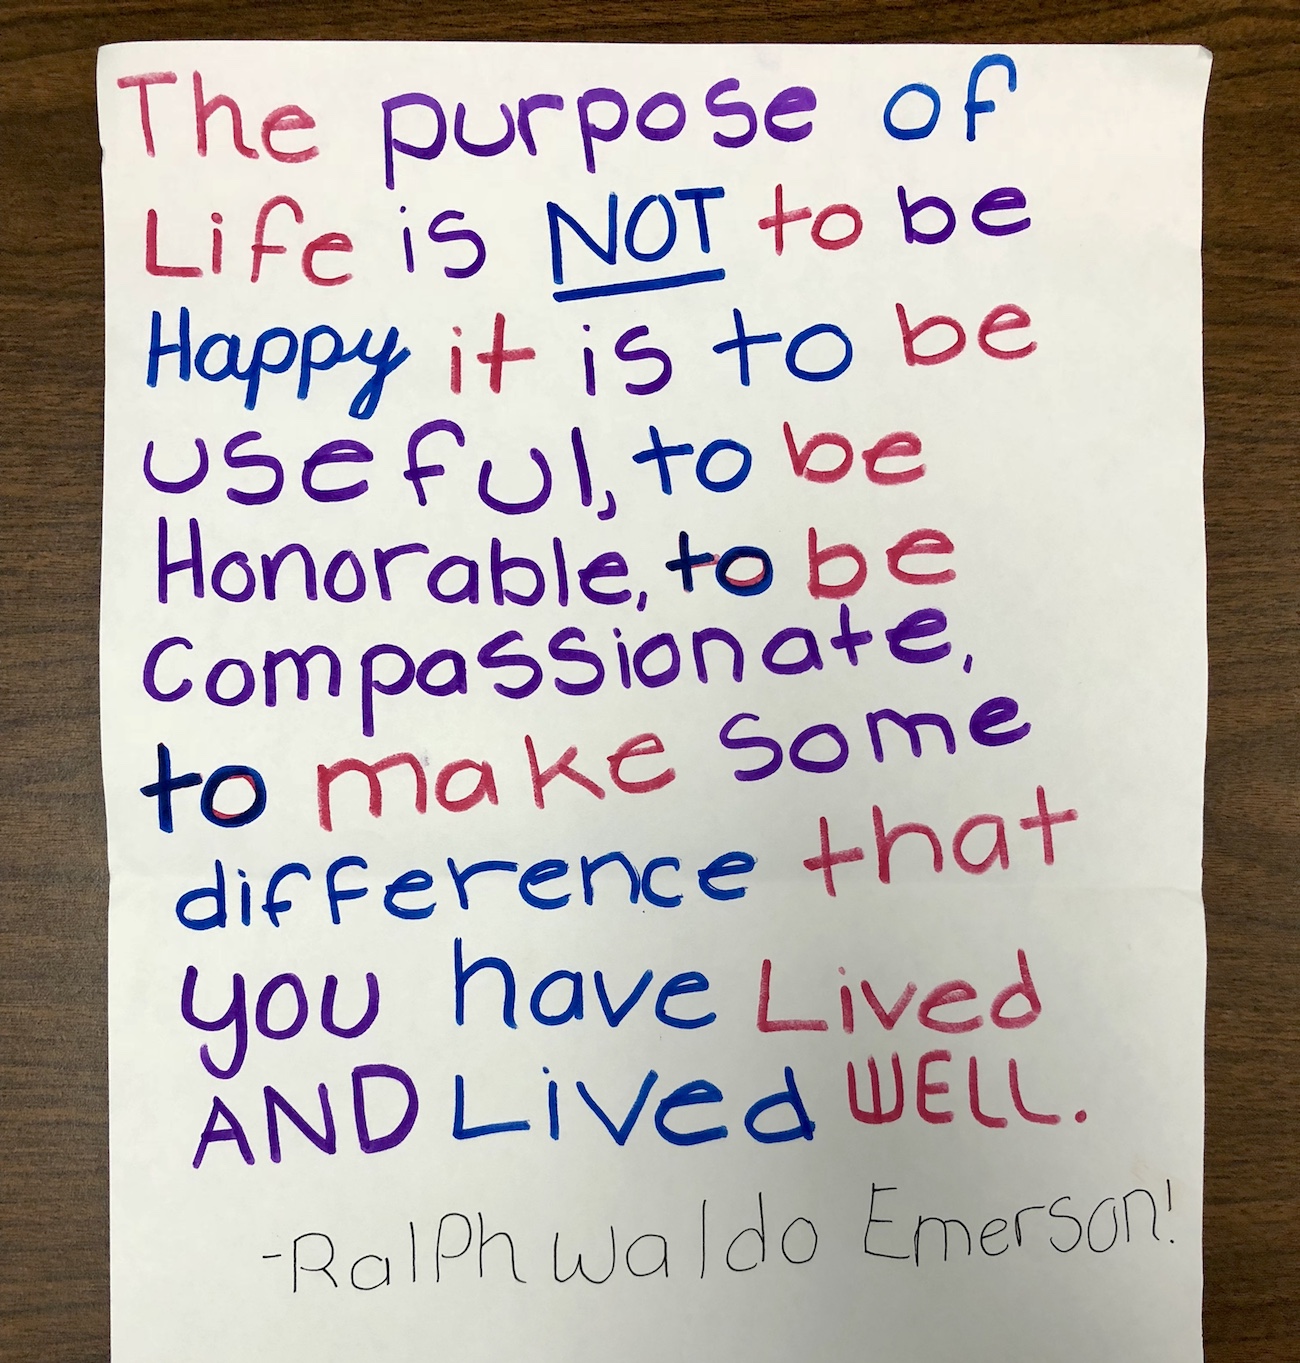 The purpose of
Life is NOT to be
Happy it is to be
useful, to be
Honorable, to be
Compassionate,
to make some
difference that
you have Lived
AND Lived WELL.
-RalPh waldo Emerson!